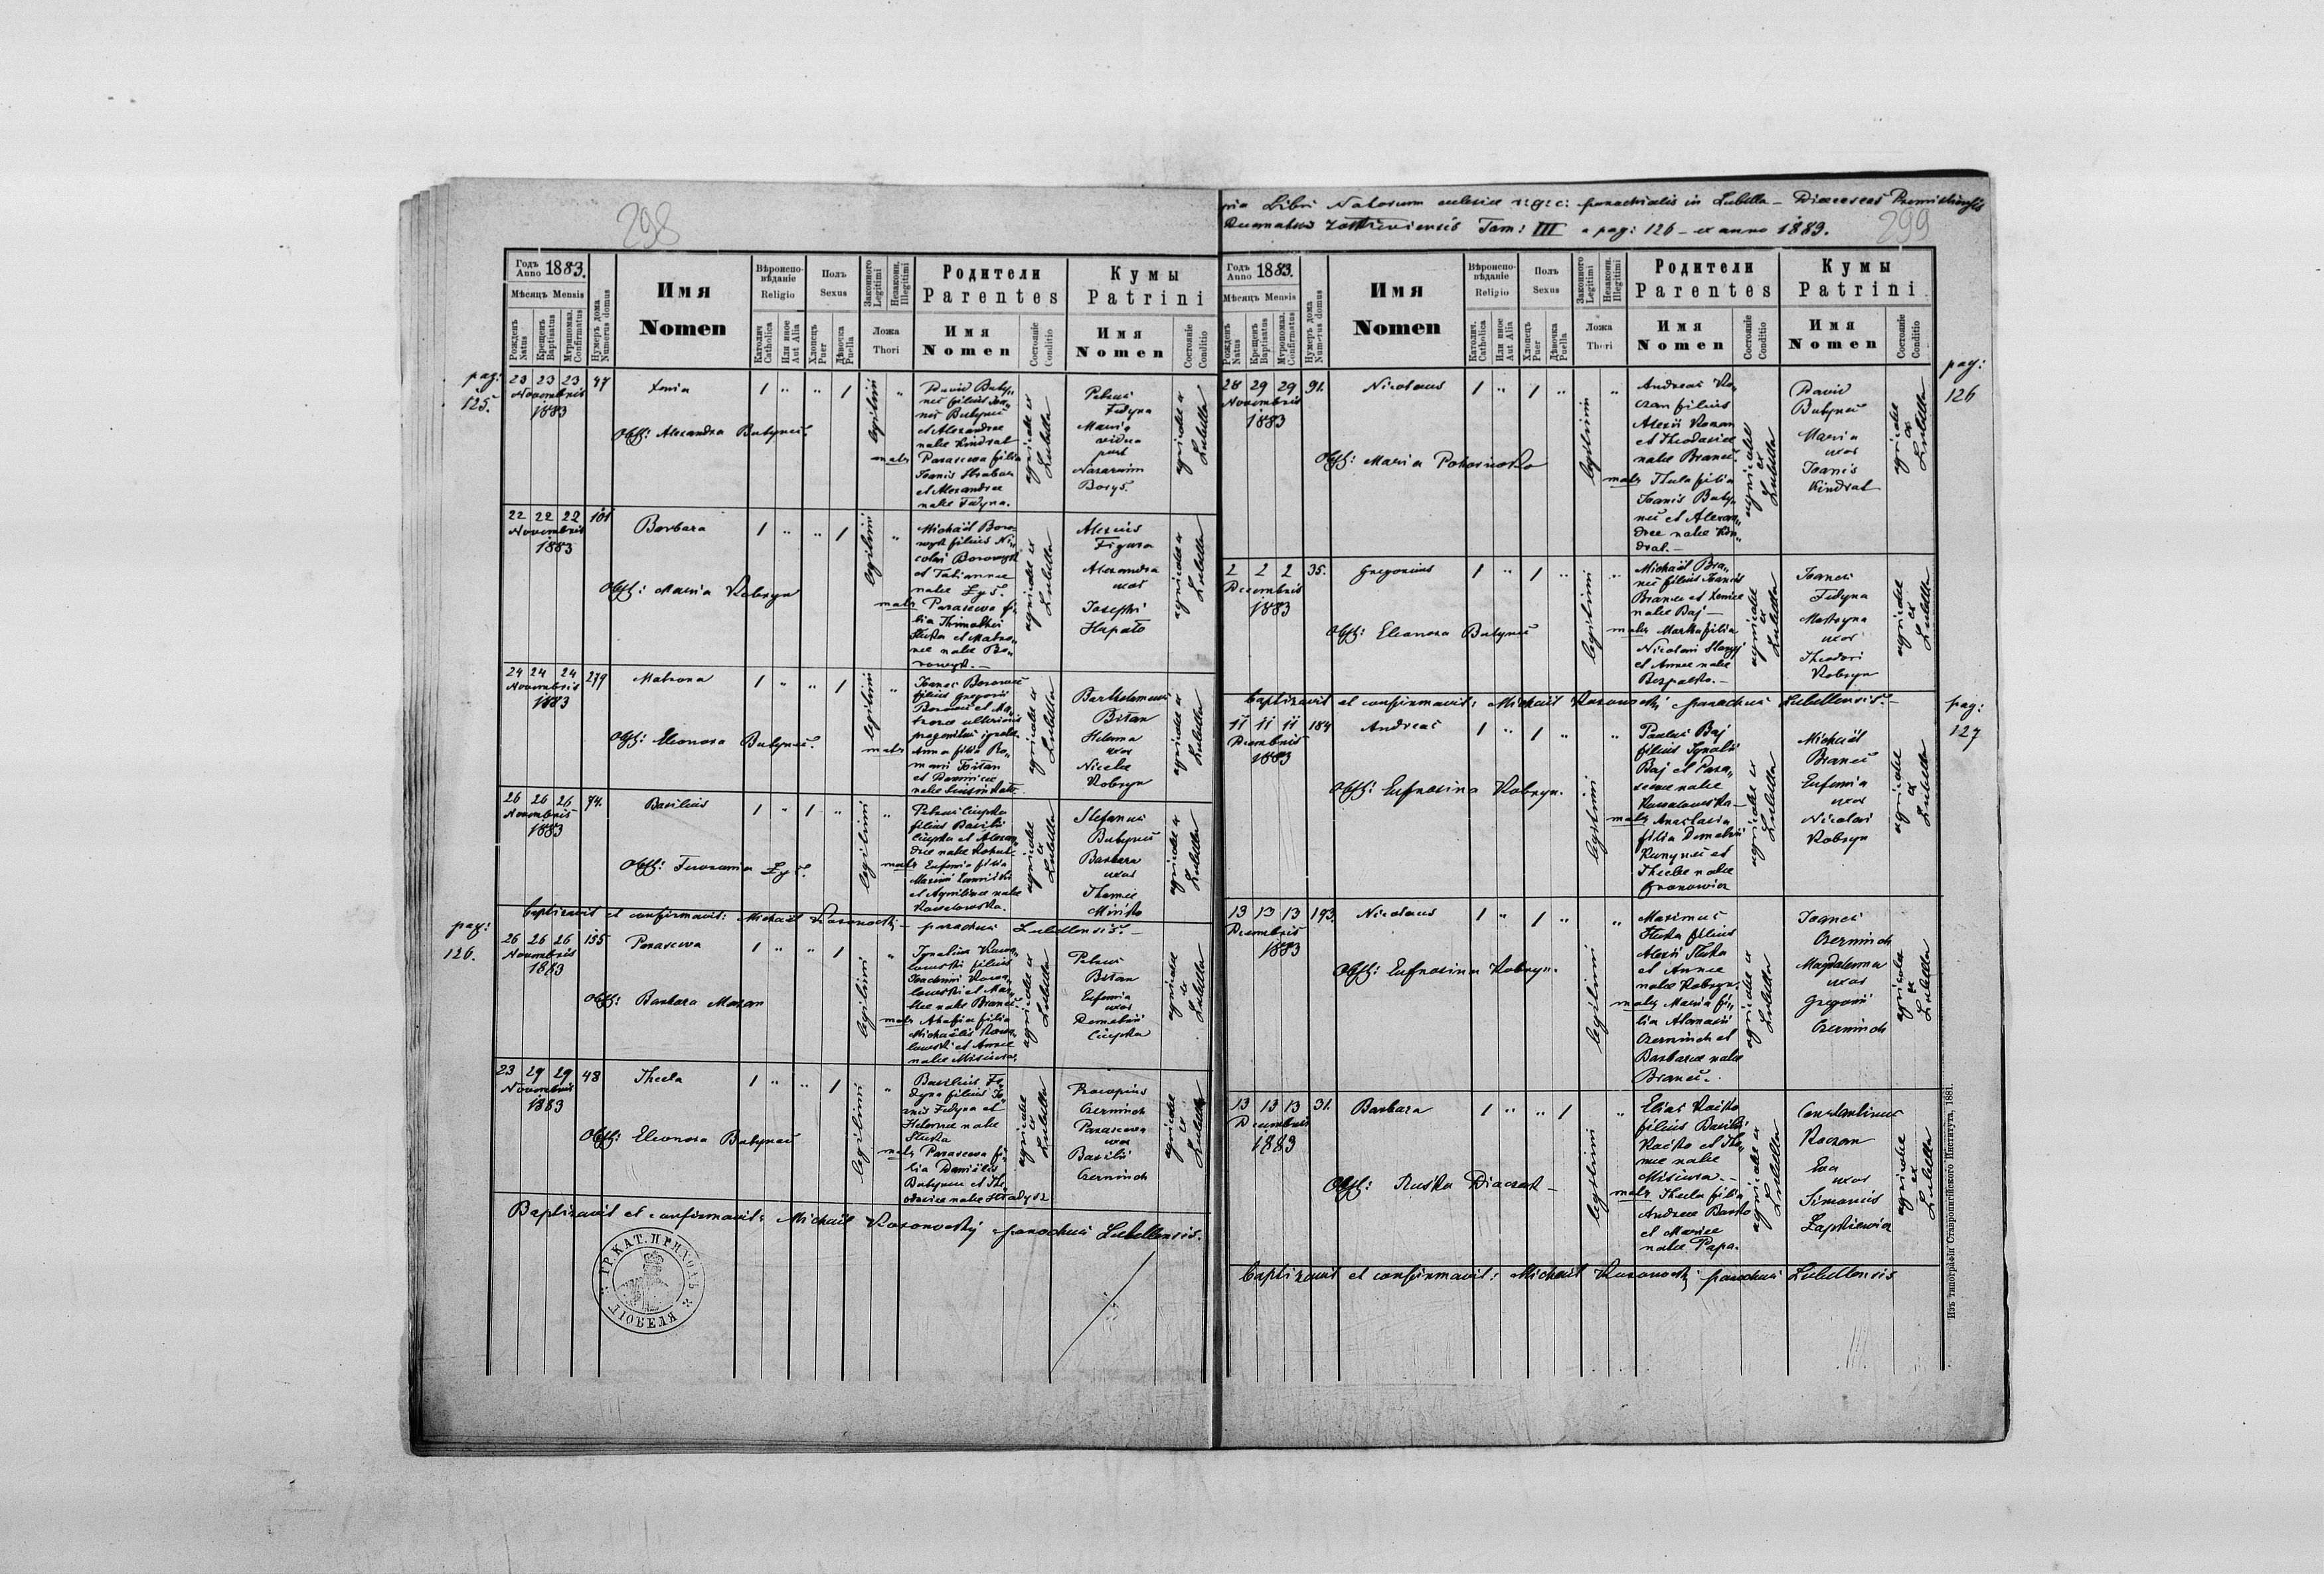 298
Годъ Anno 1883.
Мѣсяцъ Mensis
Рожденъ Natus
Крещенъ Baptisatus
Муропомаз. Confirmatus
Нумеръ дома Numerus domus
Имя
Nomen
Вѣроиспо-
вѣданіе
Religio
Католич Catholica
Или иное Aut Alia
Полъ
Sexus
Хлопецъ Puer
Дѣвочка Puella
Законного Legitimi
Незаконн. Illegitimi
Ложа
Thori
Родители
Parentes
Имя
Nomen
Состояніе Conditio
Кумы
Patrini
Имя
Nomen
Состояніе Conditio
pag:
125.
23 23 23 47
Novembris
1883
Xenia
Obst: Alexandra Butyneć
legitimi
David Buty„
neć filius Joa„
nis Butyneć
et Alexandrae
natae Kindrat
mater Parascewa filia
Joannis
et Alexandrae
natae Fedyna.
agricolae ex Lubella
Petrus
Fedyna
Maria
vidua
post
Borys.
agricolae ex Lubella
22 22 22 101
Novembris
1883
Barbara
Obst: Maria Kobryn
legitimi
Michaël Boro
wyk filius Ni„
colai Borowyk
et Tatiannae
natae Łyś.
mater Parascewa fi„
lia Thimothei
Sluka et Matro„
nae natae Bo„
rowyk.—
agricolae ex Lubella
Alexius
Figura
Alexandra
uxor
Josephi
Hupało
agricolae ex Lubella
24 24 24 279
Novembris
1883
Matrona
Obst: Eleonora Butyneć.
legitimi
Joannes
filius Gregorii
et Ma„
mater Anna filia Ro„
mani Bitan
agricolae ex Lubella
Bartholomeus
Bitan
Helena
uxor
Nicolai
Kobryn
agricolae ex Lubella
26 26 26 74.
Novembris
1883
Basilius
Obst: Łyś.
legitimi
Petrus Ciupka
filius Basilii
Ciupka et Alexan„
drae natae
mater Eufemia filia
Maximi
natae
Kowalowska.
agricolae ex Lubella
Stefanus
Butyneć
Barbara
uxor
Thomae
Mińko
agricolae ex Lubella
baptizavit et confirmavit: Michaël parochus Lubellensis.—
pag:
126.
26 26 26 135
Novembris
1883
Parascewa
Obst: Barbara Mazan
legitimi
Ignatius Kowa„
lowski filius
Joachimi Kowa„
lowski et Mar„
thae natae Braneć
mater Ahafia filia
Michaëlis Kowa„
lowski et Annae
natae Misiura.
agricolae ex Lubella
Petrus
Bitan
Eufemia
uxor
Demetrii
Ciupka
agricolae ex Lubella
23 29 29 48
Novembris
1883
Thecla
Obst: Eleonora Butyneć
legitimi
Basilius Fe„
dyna filius Jo„
anis Fedyna et
Helenae natae
Sluka
mater Parascewa fi„
lia Daniëlis
Butyneć et The„
odosiae natae
agricolae ex Lubella
Procopius
Czerninch
Parascewa
uxor
Basilii
Czerninch
agricolae ex Lubella
Baptizavit et confirmavit: Michaël parochus Lubellensis.
ГР.КАТ.ПРИХОДЪ
ЛЮБЕЛЯ
Libri Natorum ecclesiae r: g: c: parochialis in Lubella — Dioeceseos Premisliensis
Decanatus Tom: III a pag: 126 — ex anno 1883.
299
Годъ Anno 1883.
Мѣсяцъ Mensis
Рожденъ Natus
Крещенъ Baptisatus
Муропомаз. Confirmatus
Нумеръ дома Numerus domus
Имя
Nomen
Вѣроиспо-
вѣданіе
Religio
Католич. Catholica
Или иное Aut Alia
Полъ
Sexus
Хлопецъ Puer
Дѣвочка Puella
Законного Legitimi
Незаконн. Illegitimi
Ложа
Thori
Родители
Parentes
Имя
Nomen
Состояніе Conditio
Кумы
Patrini
Имя
Nomen
Состояніе Conditio
pag:
126
28 29 29 91.
Novembris
1883
Nicolaus
Obst: Maria
legitimi
Andreas Ko„
czan filius
Alexii Koczan
et Theodosiae
natae Braneć.
mater Thecla filia
Joanis Buty„
neć et Alexan„
drae natae Kin„
drat.—
agricolae ex Lubella
David
Butyneć
Maria
uxor
Joanis
Kindrat
agricolae ex Lubella
2 2 2 35.
Decembris
1883
Gregorius
Obst: Eleonora Butyneć
legitimi
Michaël Bra„
neć filius Joanis
Braneć et Xeniae
natae Baj —
mater Martha filia
Nicolai
et Annae natae
Bezpalko.—
agricolae ex Lubella
Joanes
Fedyna
uxor
Theodori
Kobryn
agricolae ex Lubella
baptizavit et confirmavit: Michaël parochus Lubellensis.—
pag:
127
11 11 11 184
Decembris
1883
Andreas
Obst: Eufrosina Kobryn.
legitimi
Paulus Baj
filius Ignatii
Baj et Para„
scewae natae
Kowalowska —
mater Anastasia
filia Demetrii
Kunyneć et
Theclae natae
Gronowicz
agricolae ex Lubella
Michaël
Braneć
Eufemia
uxor
Nicolai
Kobryn
agricolae ex Lubella
13 13 13 193.
Decembris
1883
Nicolaus
Obst: Eufrosina Kobryn.
legitimi
Maximus
Sluka filius
Alexii Sluka
et Annae
natae Kobryn
mater Maria fi„
lia Atanasii
Czerninch et
Barbarae natae
Braneć.
agricolae ex Lubella
Joanes
Czerninch
Magdalena
uxor
Gregorii
Czerninch
agricolae ex Lubella
13 13 13 31.
Decembris
1883
Barbara
Obst: Ruska Diaczek —
legitimi
Elias Kaćko
filius Basilii
Kaćko et
natae
Misiura.—
mater Thecla filia
Andreae Barko
et Mariae
natae Papa.
agricolae ex Lubella
Constantinus
Koczan
Eva
uxor
Simeonis
Łapkiewicz
agricolae ex Lubella
baptizavit et confirmavit: Michaël parochus Lubellensis
Изъ типографіи Ставропигійского Института, 1881.